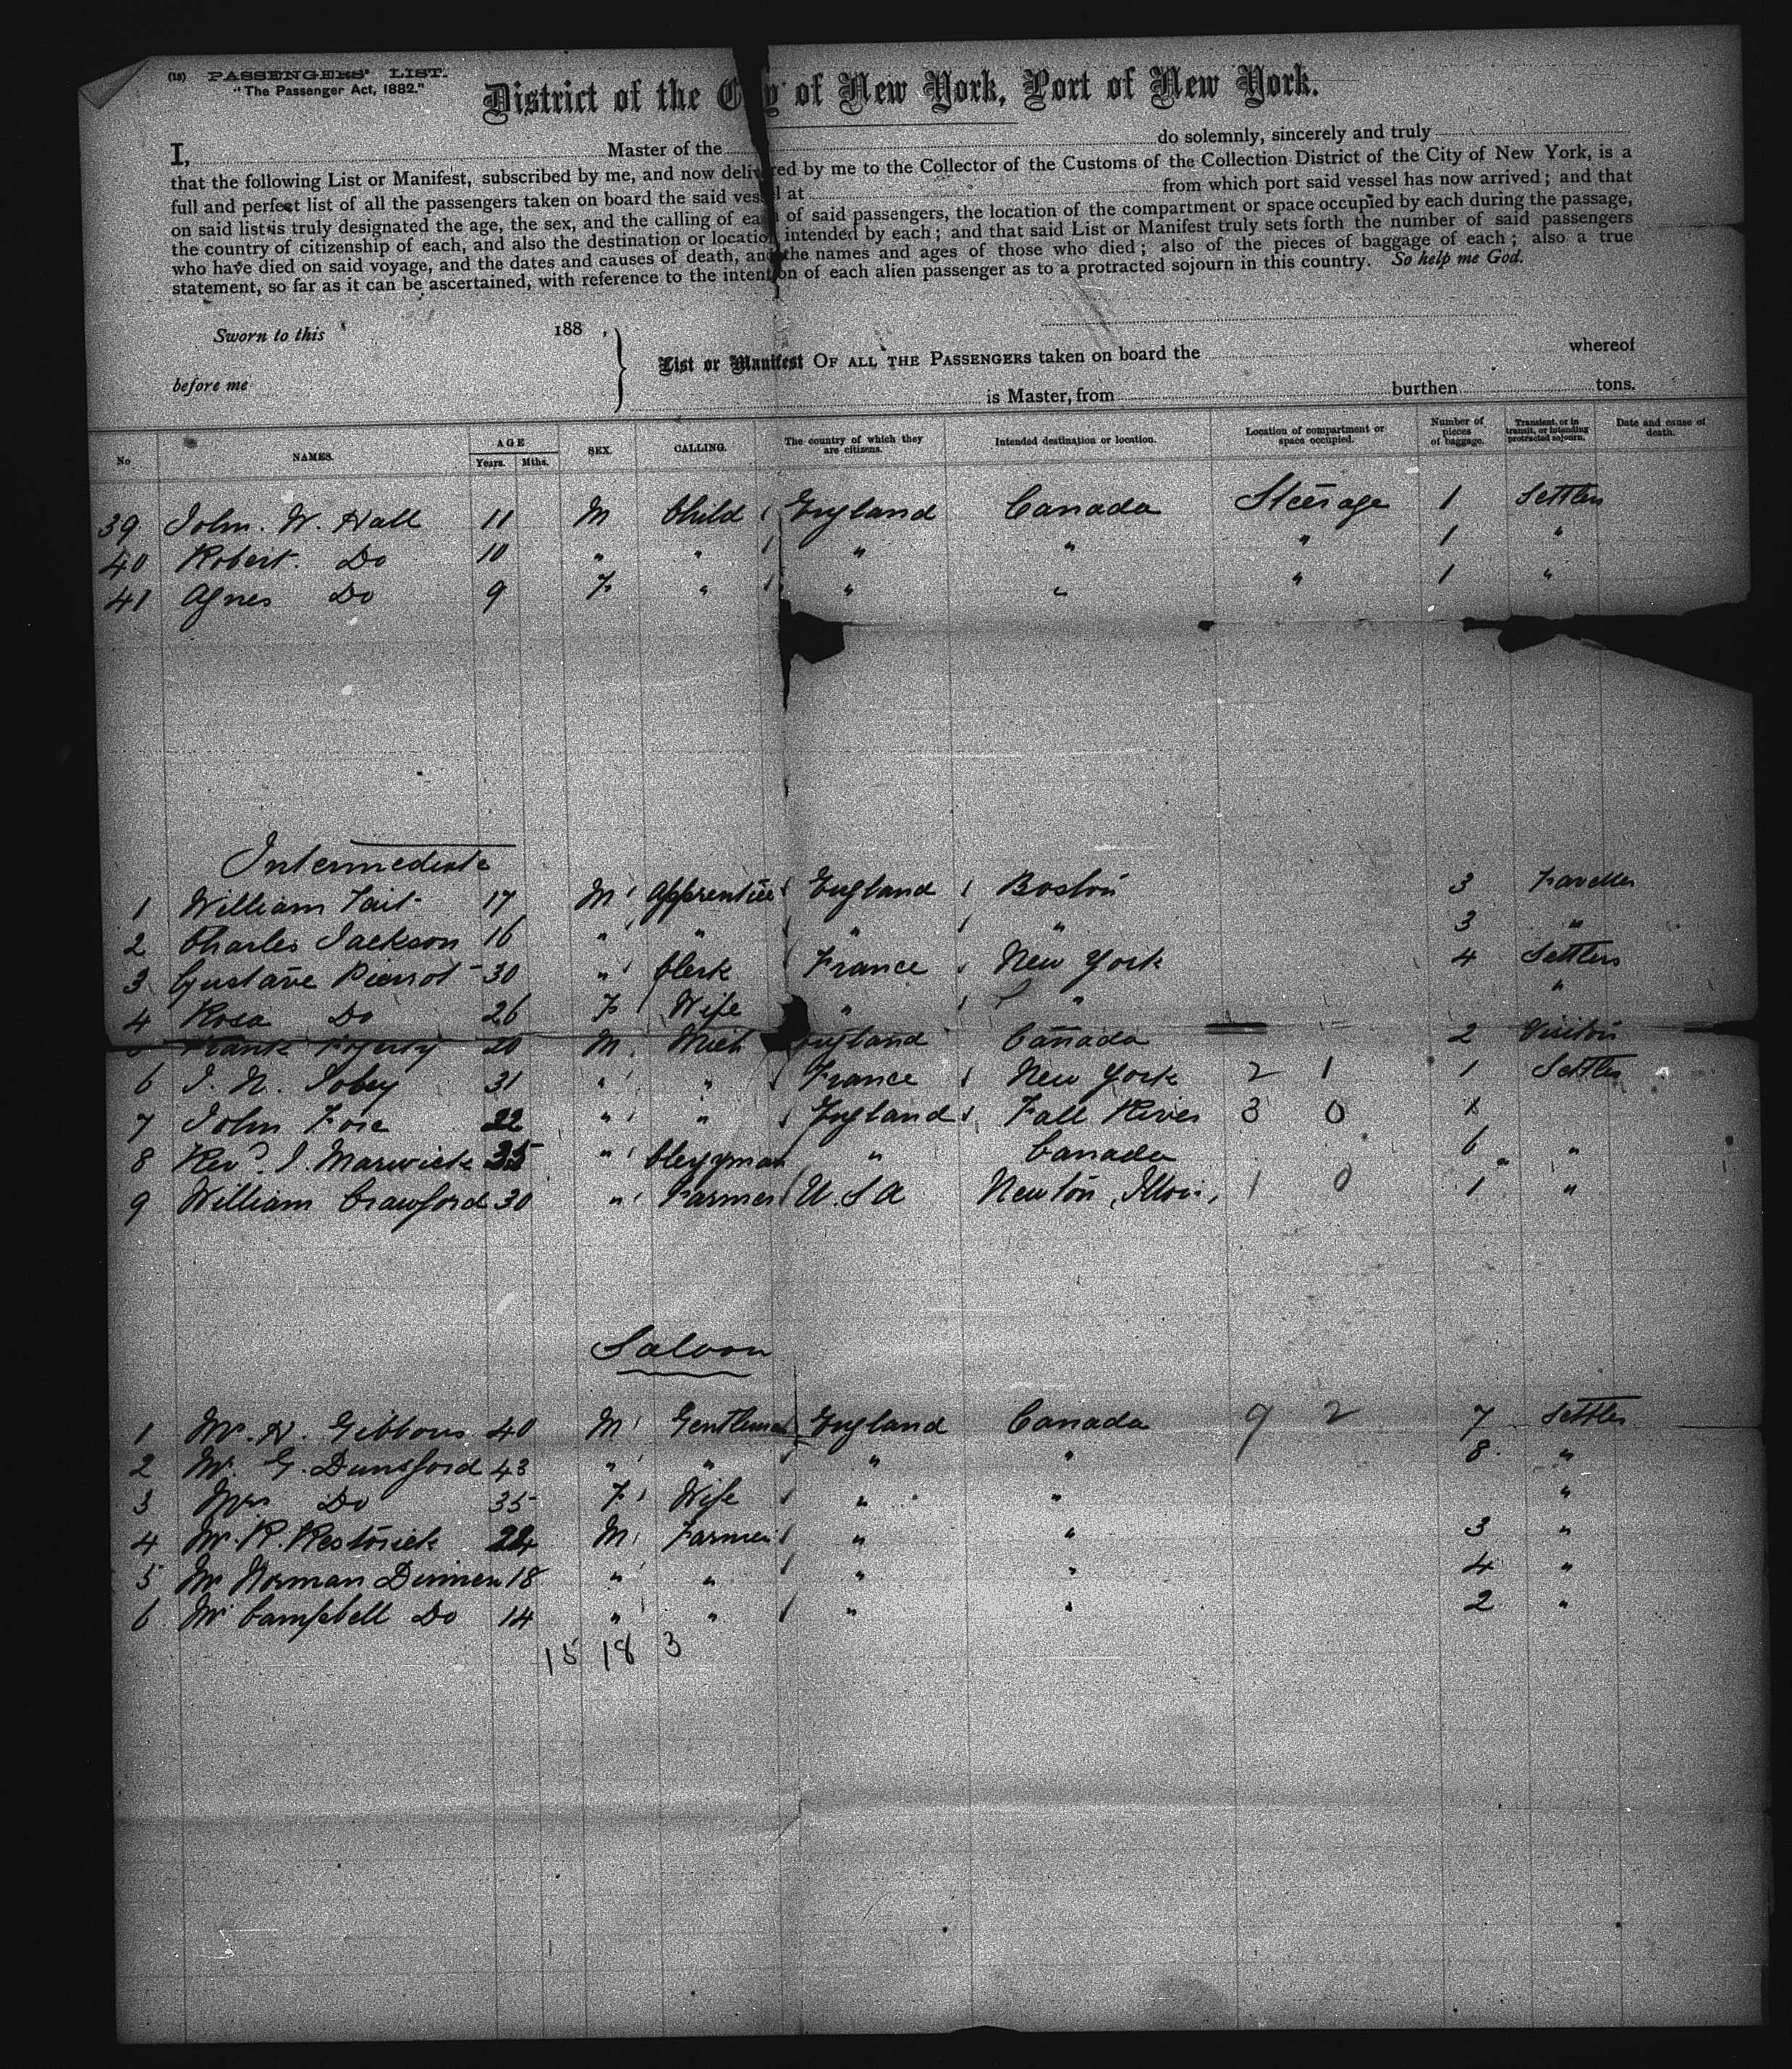 (18) PASSENGERS' LIST.
"The Passenger Act, 1882."
District of the City of New York, Port of New York.
I, Master of the do solemnly, sincerely and truly
that the following List or Manifest, subscribed by me, and now delivered by me to the Collector of the Customs of the Collection District of the City of New York, is a
full and perfect list of all the passengers taken on board the said vessel at from which port said vessel has now arrived; and that
on said list is truly designated the age, the sex, and the calling of each of said passengers, the location of the compartment or space occupied by each during the passage,
the country of citizenship of each, and also the destination or location intended by each; and that said List or Manifest truly sets forth the number of said passengers
who have died on said voyage, and the dates and causes of death, and the names and ages of those who died; also of the pieces of baggage of each; also a true
statement, so far as it can be ascertained, with reference to the intention of each alien passenger as to a protracted sojourn in this country. So help me God.
Sworn to this 188 ,
before me
List or Manifest OF ALL THE PASSENGERS taken on board the whereof
is Master, from burthen tons.
No NAMES. AGE Years. Mths. SEX. CALLING. The country of which they are citizens. Intended destination or location. Location of compartment or space occupied. Number of pieces of baggage. Transient, or in transit, or intending protracted sojourn. Date and cause of death.
39 John. W. Hall 11 M Child England Canada Steerage 1 Settler
40 Robert. Do 10 " " " " " 1 "
41 Agnes Do 9 F " " " " 1 "
Intermediate
1 William Tait 17 M Apprentice England Boston 3 Traveller
2 Charles Jackson 16 " " " " 3 "
3 Gustave Pierrot 30 " Clerk France New York 4 Settlers
4 Rosa Do 26 F Wife " " "
5 Frank Fogerty 20 M England Canada 2 Visitor
6 J. N. Tobey 31 " " France New York 2 1 1 Settler
7 John 22 " " England Fall River 3 0 1
8 Revd. J. Marwick 35 " Clergyman " Canada 6 " "
9 William Crawford 30 " Farmer U.S.A Newton, 1 0 1 "
Saloon
1 Mr. H. Gibbons 40 M Gentleman England Canada 9 2 7 Settler
2 Mr. G. Dunsford 43 " " " " 8 "
3 Mrs Do 35 F Wife " " "
4 Mr. R. Restorick 24 M Farmer " " 3 "
5 Mr Norman 18 " " " " 4 "
6 Mr Campbell Do 14 " " " " 2 "
15 18 3